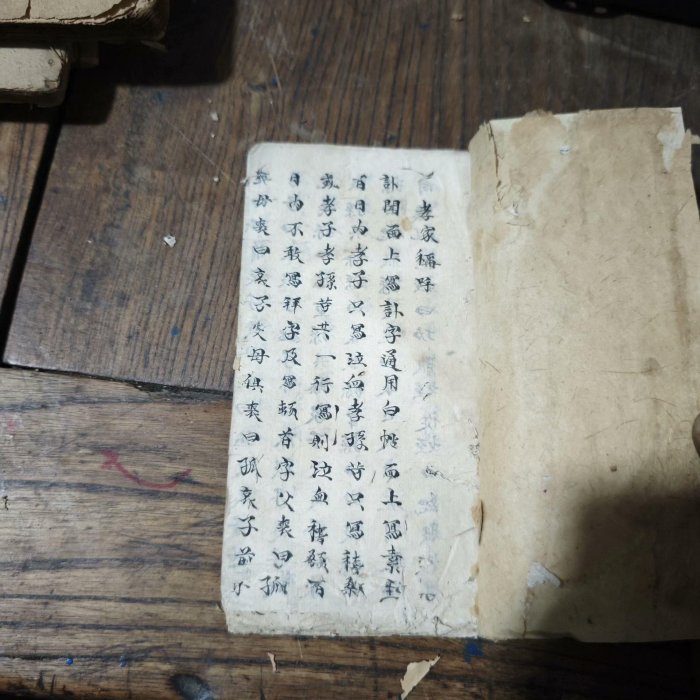 孝家稱呼
訃聞面上寫訃字通用白帖面上寫素
百日内孝子只寫泣血孝孫等只寫稽顙
或孝子孝孫等共一行寫則泣血稽顙百
日内不敢寫拜字及寫頓首字父喪曰孤
母喪曰哀子父母俱喪曰孤哀子前不